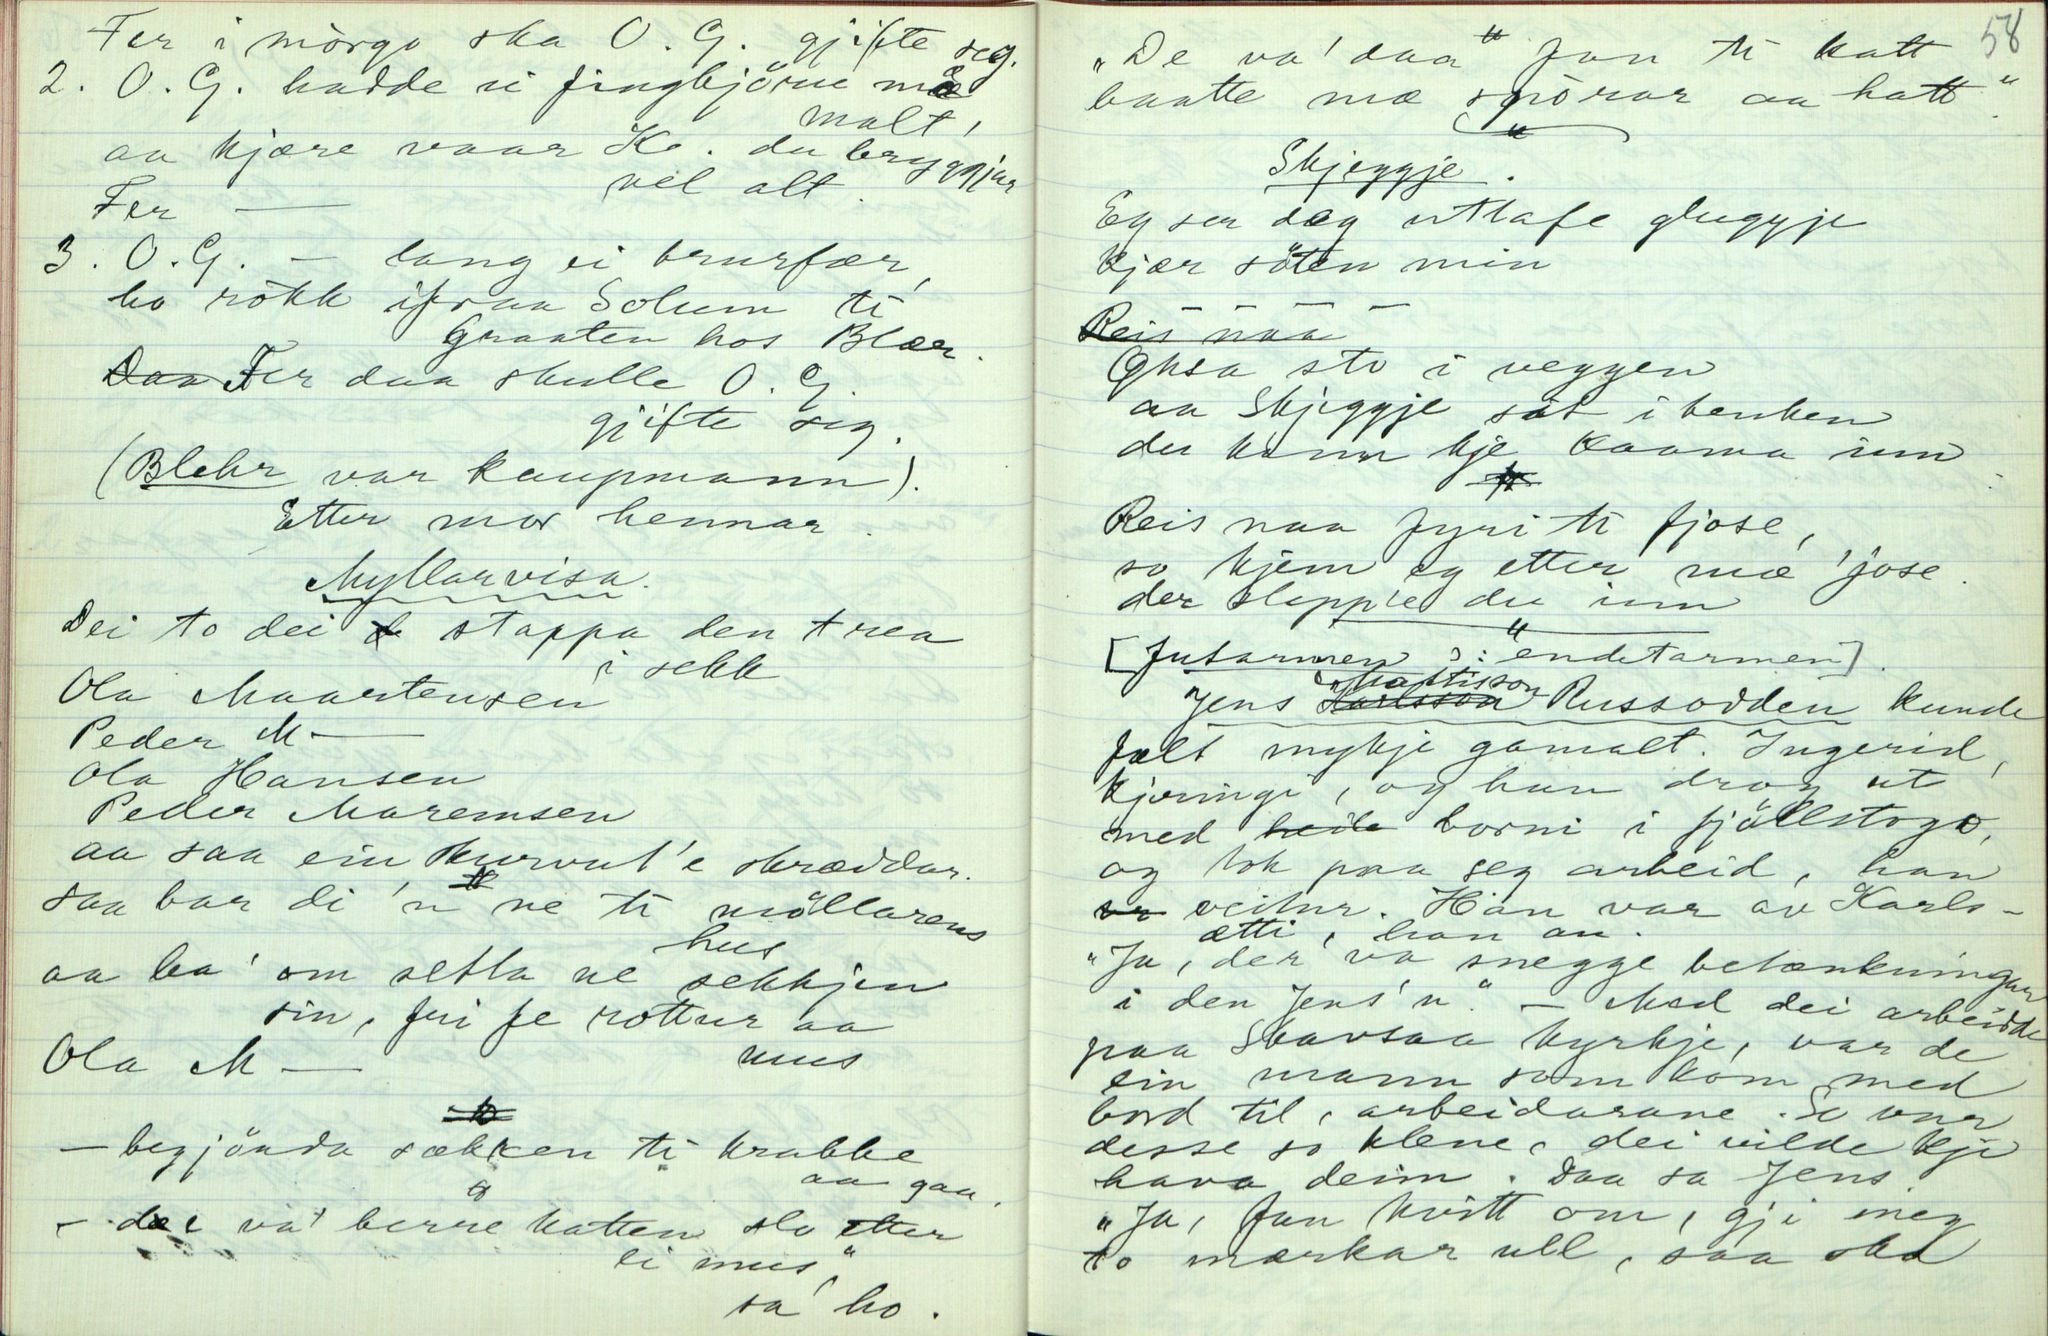 Fer i mòrgo ska O. G. gjifte seg.
2. O. G. hadde ei Jingbjörne mæ
malt,
aa kjære vaar K. du bryggjar
vel alt.
Fer —
3. O. G. — lang ei brurfær,
ho rökk ifraa Solum ti
Graaten hos Blær.
Daa Fer daa skulle O. G.
gjifte sig.
(Blehr var kaupmann).
Etter mor hennar.
Myllarvisa.
Dei to dei stappa den trea
i sekk
Ola Maartensen
Peder M —
Ola Hansen
Peder Maremsen
aa saa ein kurvut'e skræddar.
saa bar di 'n ne ti möllarens
hus
aa ba' om setta ne sekkjen
sin, fri fe rottur aa
mus
Ola M —
— begjönda sækken ti krabbe
aa gaa.
— de va' berre katten slo etter
ei mus,"
sa' ho.
58
„De va' daa" Jon ti katt
baatte mæ snòrar aa hatt."
Skjeggje.
Eg ser deg utlafe gluggje
kjær söten min
— — —
Reis naa
Øksa sto i veggen
aa Skjeggje sat i benken
du kann kje kaama inn
Reis naa fyri ti fjose,
so kjem eg etter mæ 'jose.
der sleppe du inn
[Jutarmen ɔ: endetarmen].
Mattisson
Jens Karlsson Russodden kunde
fælt mykje gamalt. Ingerid,
kjeringi, og han drog ut
med heile borni i fjöllstogo,
og tok paa seg arbeid, han
veitur. Han var av Karls-
ætti, han au.
"Ja, der va snegge betænkningar
i den Jens'n." — Med dei arbeidde
paa Skavsaa kyrkje, var de
ein mann som kom med
bord til, arbeidarane. So var
desse so klene, dei vilde kje
hava deim. Daa sa Jens
"Ja, fan kvitt om, gji meg
to markar ull, saa ska